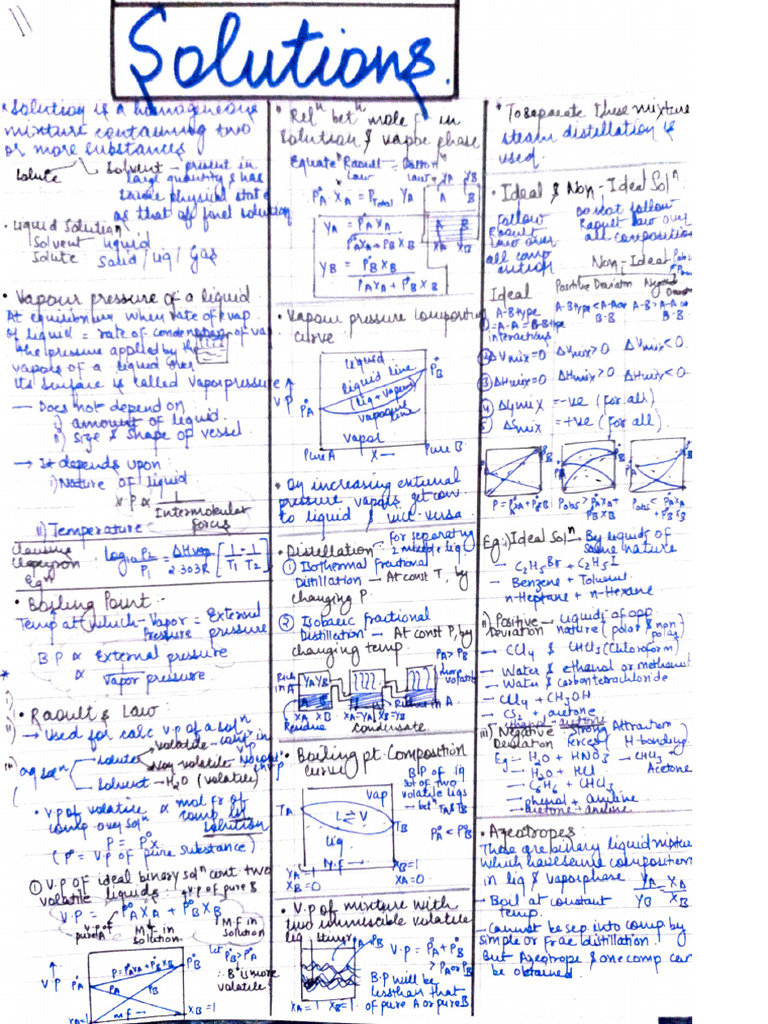 Solutions.
* Solution is a homogeneous
mixture containing two
or more substances
Solute
Solvent - present in
large quantity & has
same physical state
as that of final solution
• Liquid Solution
Solvent liquid
Solute Solid / liq / Gas
• Vapour pressure of a liquid
At equilibrium when rate of evap
of liquid = rate of condensation of vap
the pressure applied by the
vapors of a liquid over
its surface is called Vapor pressure
— Does not depend on
i) amount of liquid
ii) Size & shape of vessel
→ It depends upon
i) Nature of liquid
V.P ∝ 1 / Intermolecular forces
ii) Temperature
Clausius
Clapeyron
Eqⁿ
log₁₀ P₂/P₁ = ΔHvap / 2.303R [1/T₁ - 1/T₂]
• Boiling Point :-
Temp at which - Vapor Pressure = External pressure
B P ∝ External pressure
∝ 1 / Vapor pressure
• Raoult's Law
→ Used for calc v.p of a solⁿ
solute volatile
Non volatile
Solvent - H₂O (volatile)
• v.p of volatile ∝ mol fr of
comp over solⁿ comp in solution
P = P°x
(P° = V.P of pure substance)
① V.P of ideal binary solⁿ cont two
volatile liquids
v.p of pure B
V.P = P°A XA + P°B XB
v.p of pure A
M.f in solution
M.F in solution
let P°B > P°A
∴ B is more
volatile
↑ V P
P = P°A XA + P°B XB
P°A
P°B
PA
PB
XA=1
m.f →
XB=1
• Relⁿ betⁿ mole f in
solution & vapor phase
Equate Raoult Law = Dalton Law
P°A XA = PTotal YA
YA YB
A B
A B
XA XB
YA = P°A XA / P°A XA + P°B XB
YB = P°B XB / P°A XA + P°B XB
• Vapour pressure composition
curve
↑ V P
P°A
P°B
liquid
liquid line
(liq + vapor)
vaporous line
vapor
Pure A X → Pure B
• On increasing external
pressure vapors get conv
to liquid & vice versa
• Distillation = for separating
2 mixed liq
① Isothermal Fractional
Distillation — At const T, by
changing P.
② Isobaric fractional
Distillation — At const P, by
changing temp.
PA > PB
more volatile
Rich in A
YA YB
XA XB
Rich in A
Residue
condensate
• Boiling pt. Composition
curve
B.P of liq
sol of two
volatile liqs
— betⁿ TA & TB
P°A < P°B
TA
vap
L ⇌ V
liq
TB
M.f →
XA=1
XB=0
XB=1
XA=0
• V.P of mixture with
two immiscible volatile
liq
V.P = P°A + P°B
> PA or PB
B.P will be
less than that
of pure A or pure B
XA=1 XB=1
• To separate these mixture
steam distillation is
used.
• Ideal & Non-Ideal Solⁿ
follow
Raoult
law over
all comp
osition
Do not follow
Raoult law over
all composition
Non-Ideal
Ideal
Positive Deviation
Negative Deviation
A-B type
= A-A = B-B type
interactions
A-B type < A-A or B-B
A-B > A-A or B-B
② ΔVmix=0 ΔVmix>0 ΔVmix<0
③ ΔHmix=0 ΔHmix>0 ΔHmix<0
④ ΔGmix = -ve (for all)
⑤ ΔSmix = +ve (for all)
P = P°A XA + P°B XB
Pobs > P°A XA + P°B XB
Pobs < P°A XA + P°B XB
Eg:- i) Ideal Solⁿ - By liquids of
same nature
→ C₂H₅Br + C₂H₅I
- Benzene + Toluene
- n-Heptane + n-Hexane
ii) Positive Deviation — liquids of opp nature (polar & non polar)
- CCl₄ & CHCl₃ (Chloroform)
- Water & ethanol or methanol
- Water & carbontetrachloride
- CCl₄ + CH₃OH
- CS₂ + acetone
- ethanol - acetone
iii) Negative Deviation — Strong Attraction forces (H-bonding)
Eg — H₂O + HNO₃
— CHCl₃ Acetone
— H₂O + HCl
— C₆H₆ + CHCl₃
— phenol + aniline
— Acetone + aniline
• Azeotropes
These are binary liquid mixture
which have same composition
in liq & vapor phase YA/YB = XA/XB
- Boil at constant
temp.
— Cannot be sep into comp by
simple or frac distillation.
But Azeotrope & one comp can
be obtained.